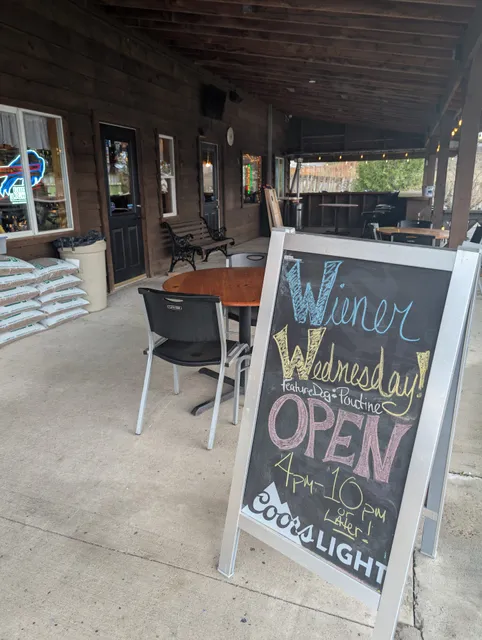 Wiener
Wednesday!
Feature Dog: Poutine
OPEN
4pm-10pm
or
Later!
Coors
LIGHT